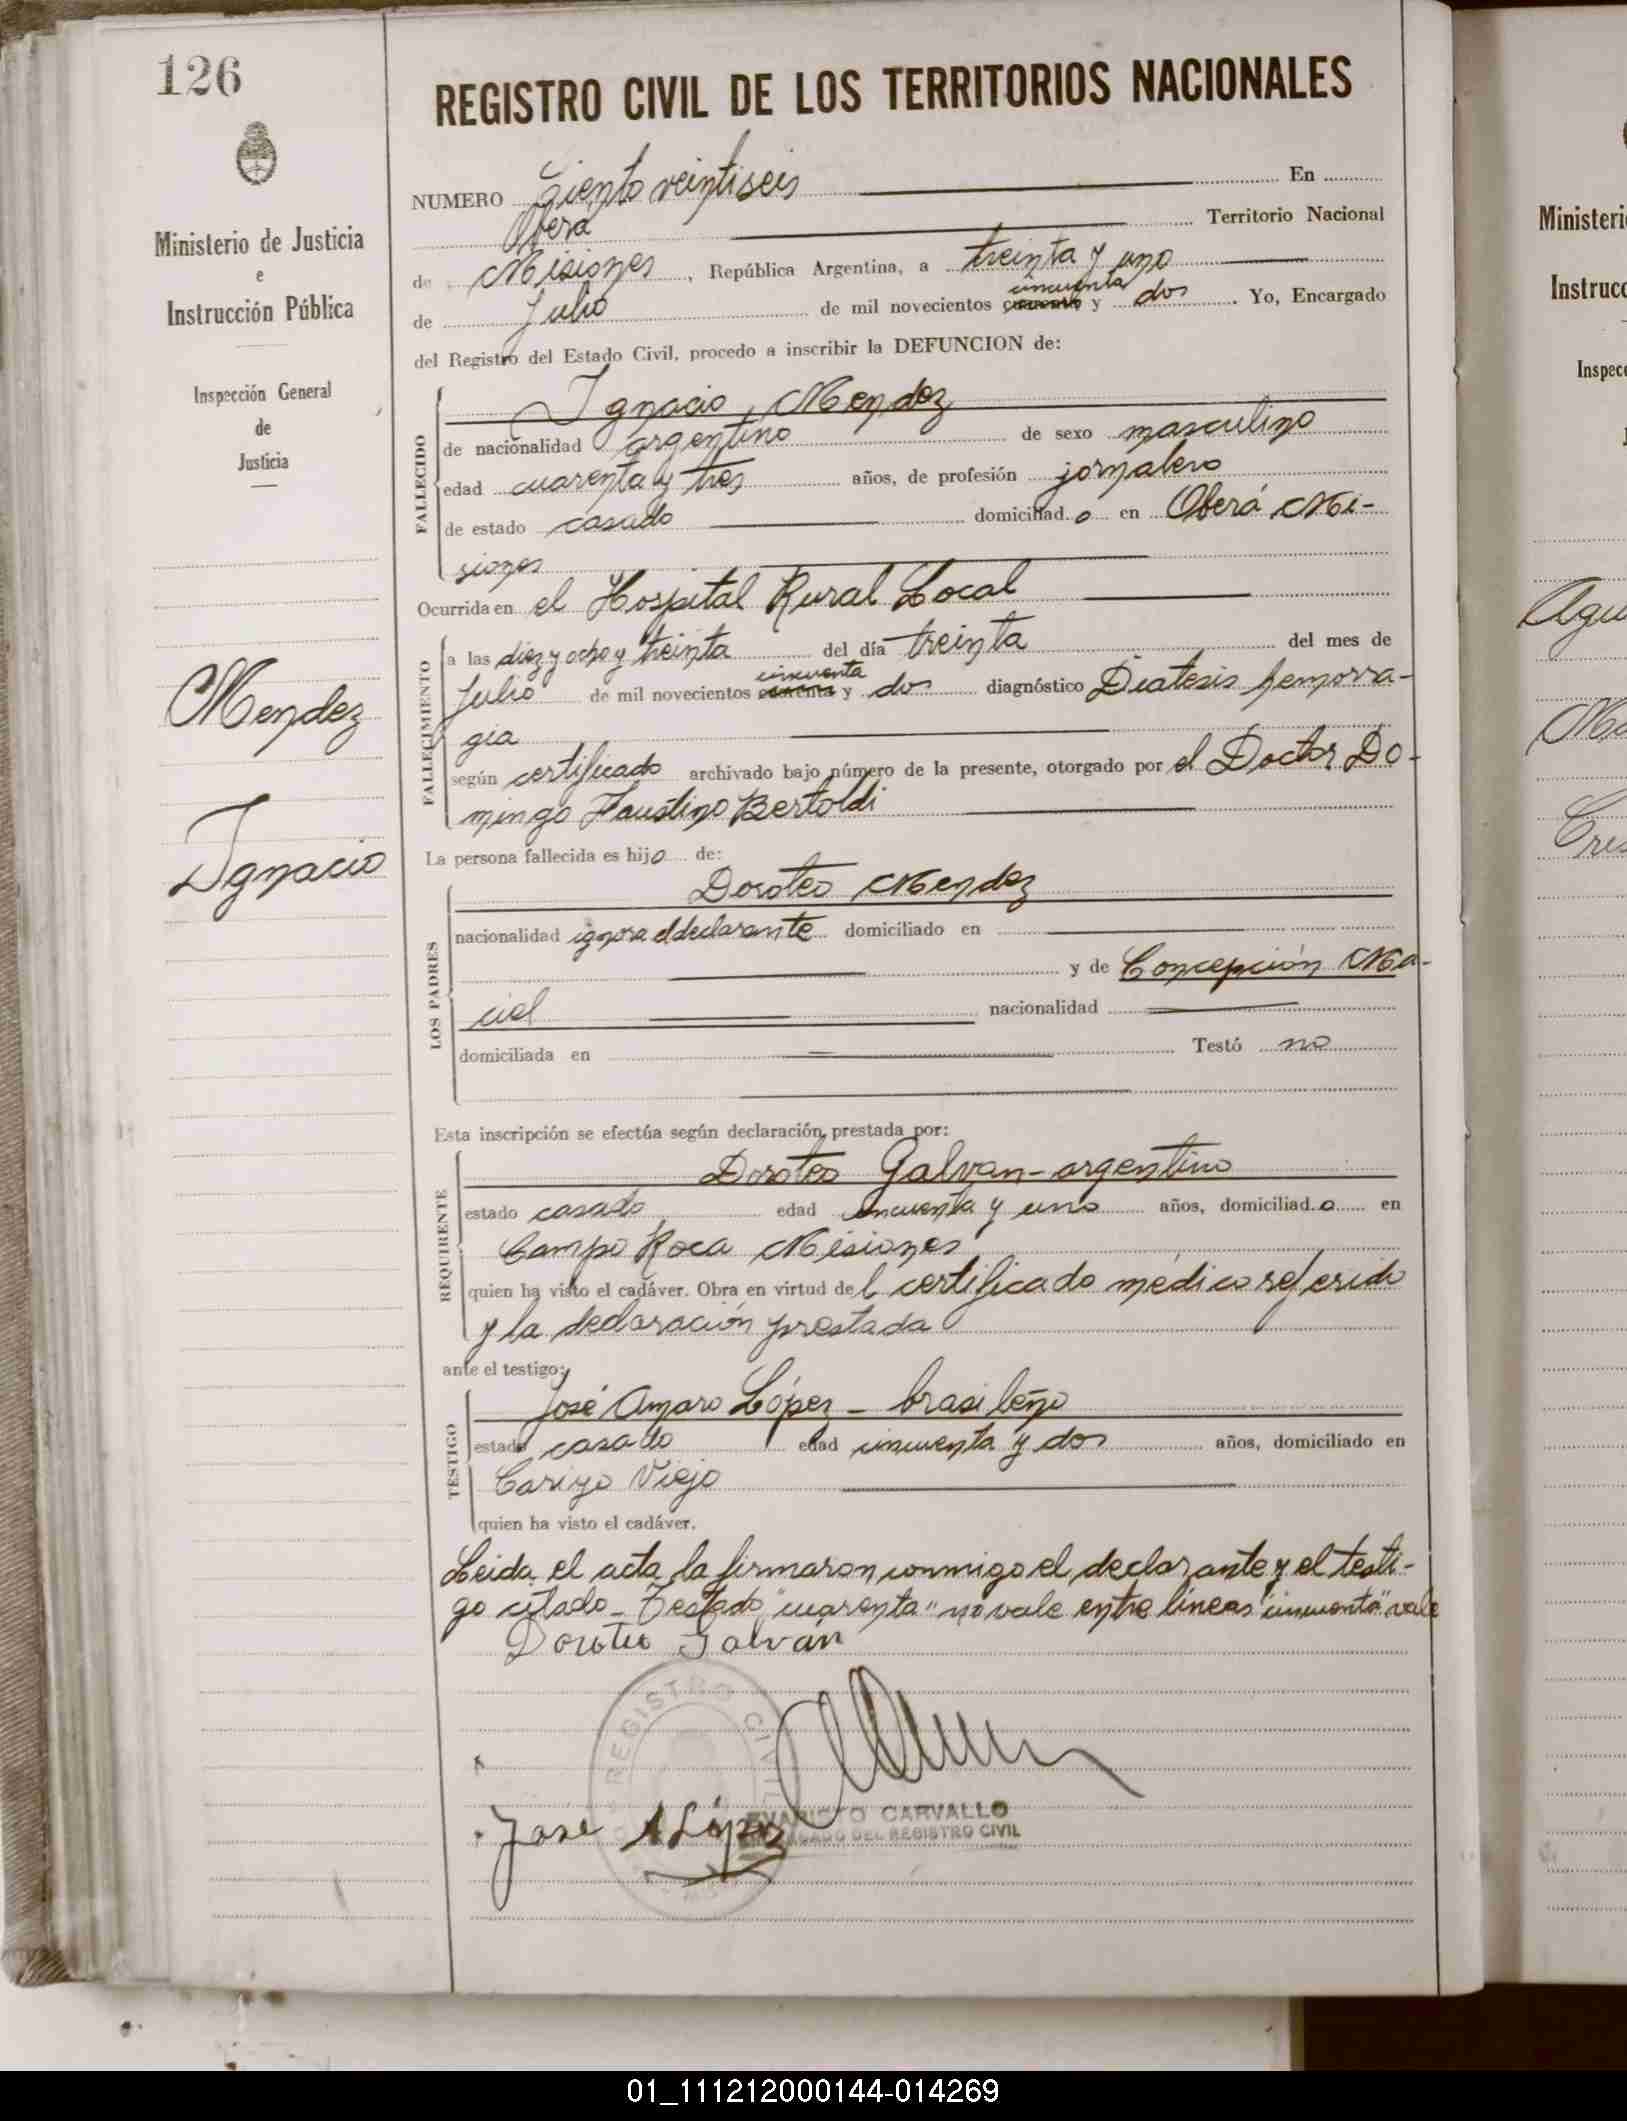 126
REGISTRO CIVIL DE LOS TERRITORIOS NACIONALES
Ministerio de Justicia
e
Instrucción Pública
Inspección General
de
Justicia
Mendez
Ignacio
NUMERO Ciento veintiseis En
Oberá Territorio Nacional
de Misiones, República Argentina, a treinta y uno
cincuenta
de Julio de mil novecientos cuarenta y dos. Yo, Encargado
del Registro del Estado Civil, procedo a inscribir la DEFUNCION de:
FALLECIDO
Ignacio Mendez
de nacionalidad argentino de sexo masculino
edad cuarenta y tres años, de profesión jornalero
de estado casado domiciliado en Oberá Mi-
siones
Ocurrida en el Hospital Rural Local
FALLECIMIENTO
a las diez y ocho y treinta del día treinta del mes de
cincuenta
Julio de mil novecientos cuarenta y dos diagnóstico Diatesis hemorra-
gia
según certificado archivado bajo número de la presente, otorgado por el Doctor Do-
mingo Faustino Bertoldi
La persona fallecida es hijo de:
LOS PADRES
Doroteo Mendez
nacionalidad ignora el declarante domiciliado en
y de Concepción Ma-
ciel nacionalidad
domiciliada en Testó no
Esta inscripción se efectúa según declaración prestada por:
REQUIRENTE
Doroteo Galvan - argentino
estado casado edad cincuenta y uno años, domiciliado en
Campo Roca Misiones
quien ha visto el cadáver. Obra en virtud del certificado médico referido
y la declaración prestada
ante el testigo:
TESTIGO
José Amaro López - brasileño
estado casado edad cincuenta y dos años, domiciliado en
Viejo
quien ha visto el cadáver.
Leida el acta la firmaron conmigo el declarante y el testi-
go citado - Testado "cuarenta" no vale entre lineas "cincuenta" vale
Doroteo Galván
REGISTRO CIVIL
José A López
EVARISTO CARVALLO
ENCARGADO DEL REGISTRO CIVIL
Ministeri
Instrucc
Inspec
Agu
Ma
Cres
01_111212000144-014269